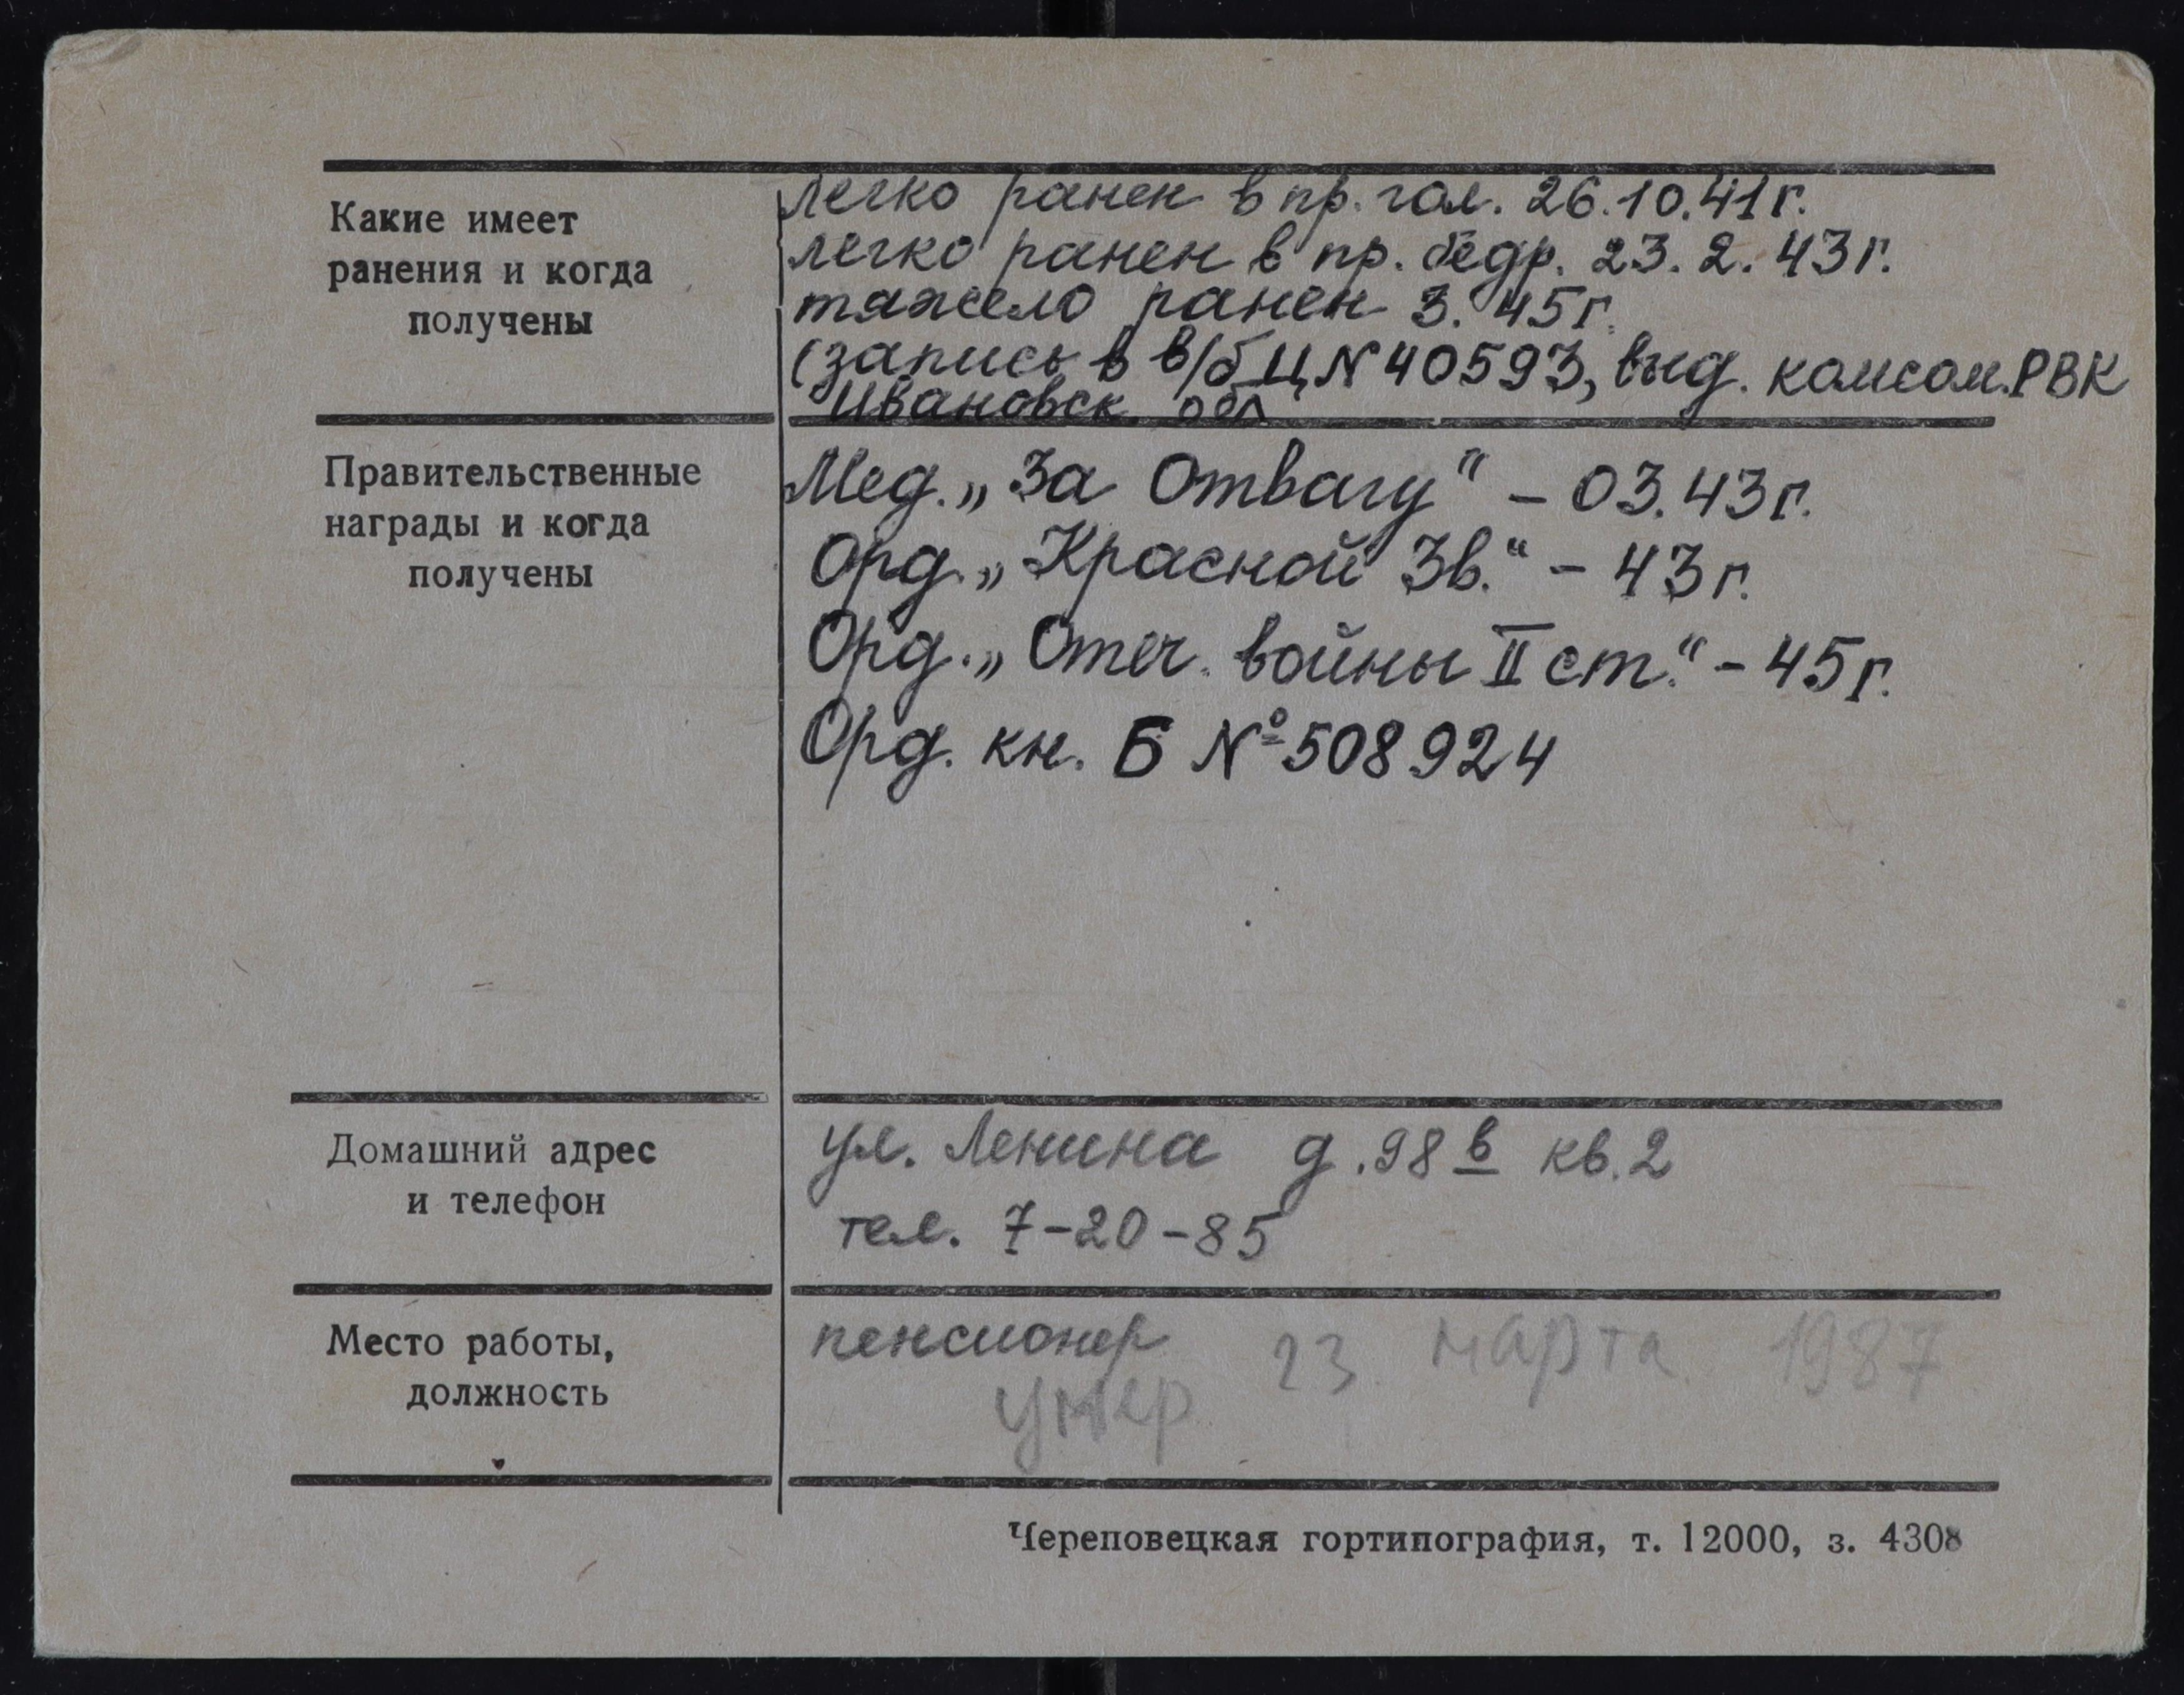 Какие имеет
ранения и когда
получены
легко ранен в пр. гол. 26.10.41г.
легко ранен в пр. бедр. 23.2.43г.
тяжело ранен 3.45г.
(запись в в/б Ц N 40593, выд. комсом. РВК
Ивановск обл
Правительственные
награды и когда
получены
Мед. „За Отвагу“ – 03.43г.
Орд. „Красной Зв.“ – 43г.
Орд. „Отеч. войны II ст.“ – 45г.
Орд. кн. Б № 508924
Домашний адрес
и телефон
ул. Ленина д. 98 в кв. 2
тел. 7-20-85
Место работы,
должность
пенсионер 23 марта 1987
умер
Череповецкая гортипография, т. 12000, з. 4308